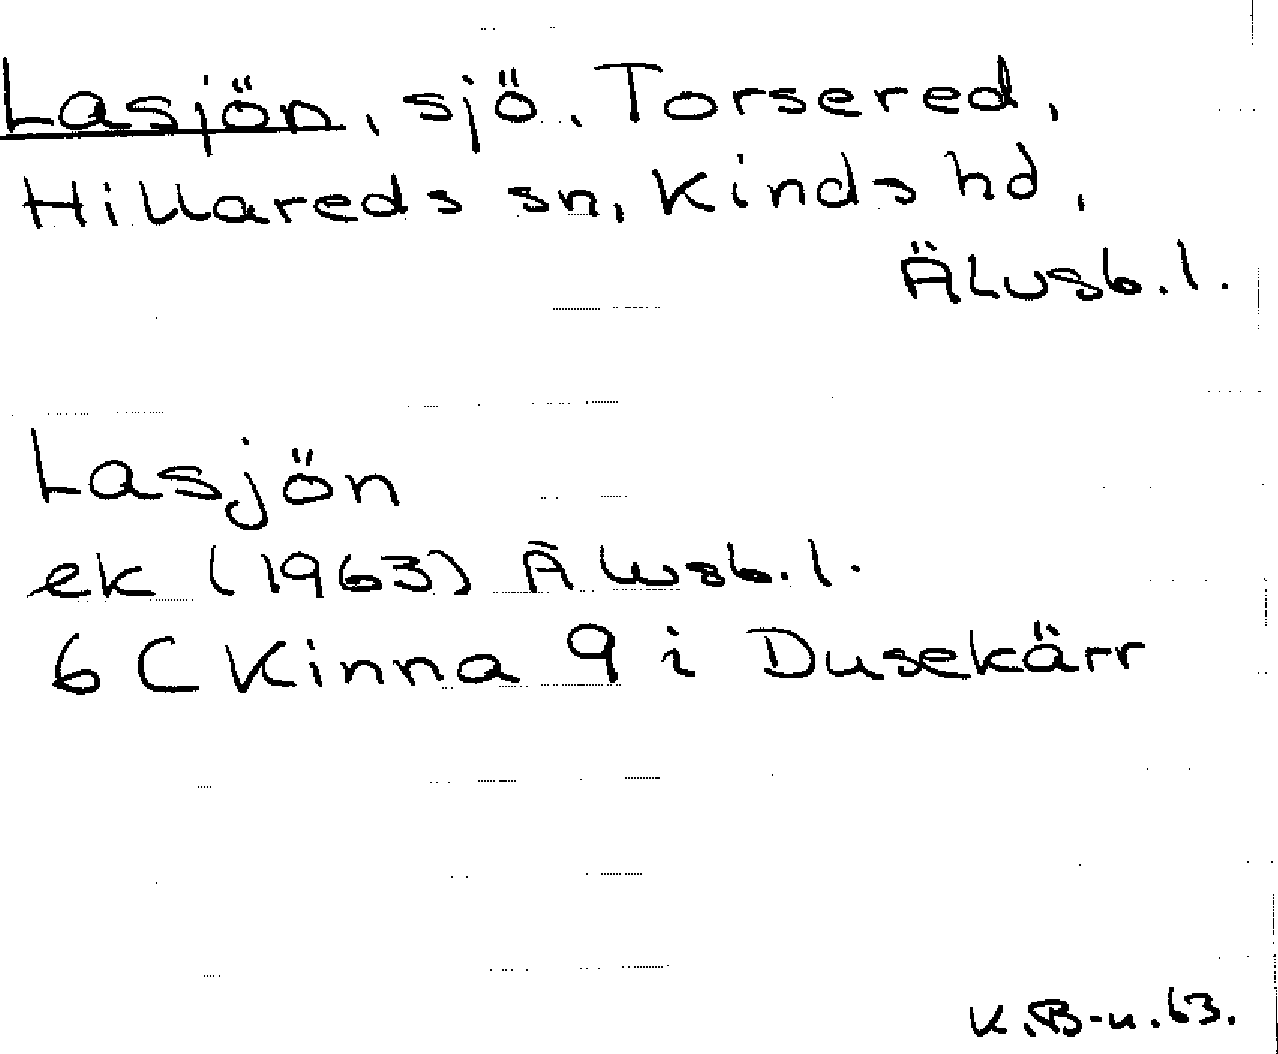 Lasjön, sjö, Torsered,
Hillareds sn, Kinds hd,
Älvsb. l.
Lasjön
ek (1963) Älvsb. l.
6 C Kinna 9 i Dusekärr
K.B-n. 63.